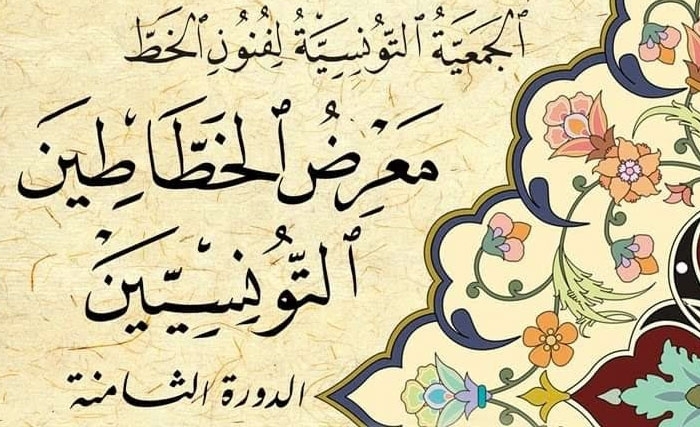 الجَمعِيَّةُ التّونِسِيَّةُ لِفُنُونِ الخَطّ
مَعَرِضُ الخَطَّاطِينَ
التّونِسِيّينَ
الدورة الثامنة